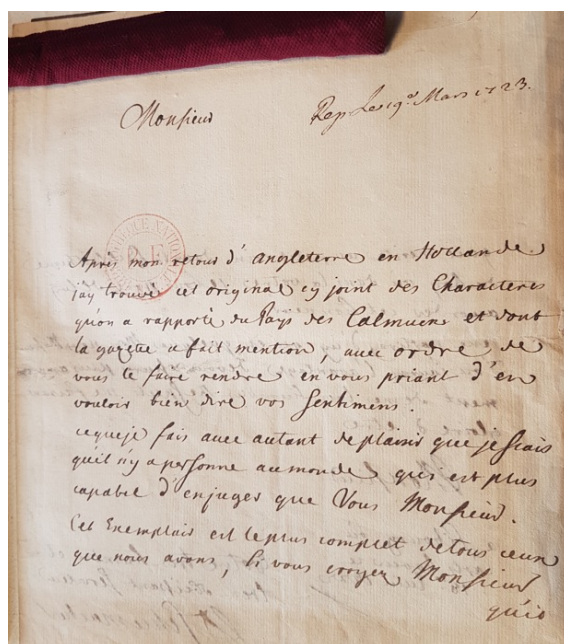 Monsieur
Rep. Le 19.e Mars 1723.
Apres mon retour d'angleterre en Hollande
j'ay trouvé cet original cy joint des Characteres
qu'on a rapporté du Pays des Calmucns et dont
la gazette a fait mention, avec ordre de
vous le faire rendre en vous priant d'en
vouloir bien dire vos Sentimens.
ceque je fais avec autant de plaisir que je scais
quil n'y a personne au monde qui est plus
capable d'en juger que Vous Monsieur.
Cet Exemplair est le plus complet de tous ceux
que nous avons, Si vous croyez Monsieur
qu'io